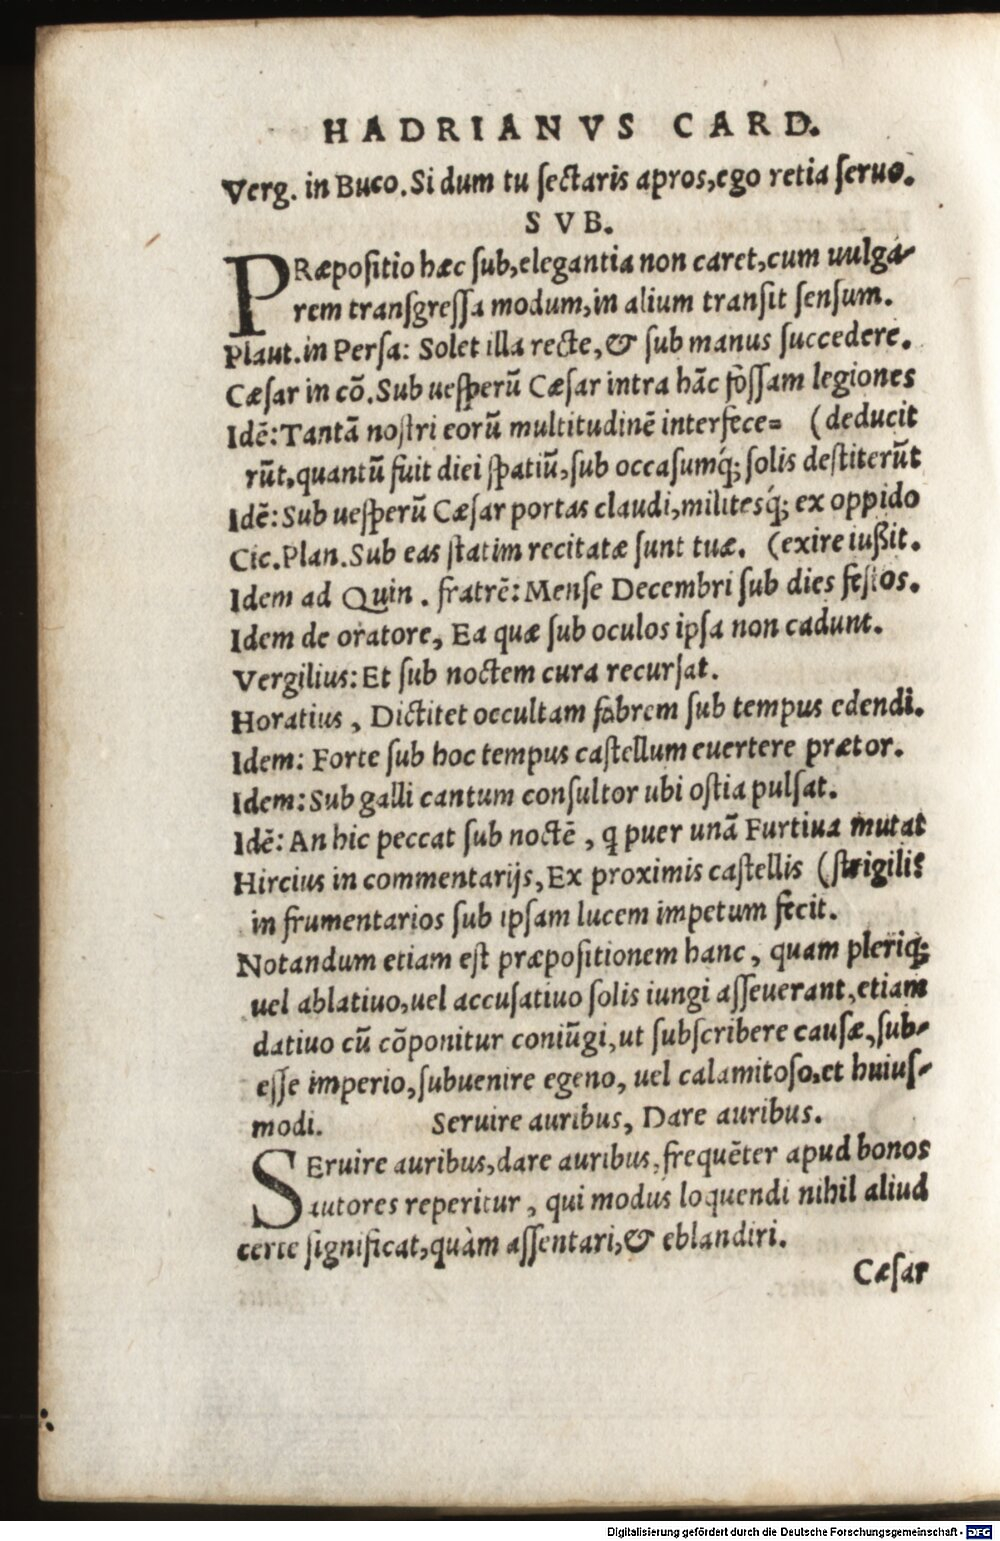 HADRIANVS CARD.
Verg. in Buco. Si dum tu ſectaris apros, ego retia ſeruo.
SVB.
PRæpoſitio hæc ſub, elegantia non caret, cum uulga-
rem tranſgreſſa modum, in alium tranſit ſenſum.
Plaut. in Perſa: Solet illa recte, & ſub manus ſuccedere.
Cæſar in cō. Sub ueſperū Cæſar intra hāc foſſam legiones
Idē: Tantā noſtri eorū multitudinē interfece= (deducit
rūt, quantū fuit diei ſpatiū, ſub occaſumq́; ſolis deſtiterūt
Idē: Sub ueſperū Cæſar portas claudi, militesq́; ex oppido
Cic. Plan. Sub eas ſtatim recitatæ ſunt tuæ. (exire iußit.
Idem ad Quin. fratrē: Menſe Decembri ſub dies feſtos.
Idem de oratore, Ea quæ ſub oculos ipſa non cadunt.
Vergilius: Et ſub noctem cura recurſat.
Horatius, Dictitet occultam febrem ſub tempus edendi.
Idem: Forte ſub hoc tempus caſtellum euertere prætor.
Idem: Sub galli cantum conſultor ubi oſtia pulſat.
Idē: An hic peccat ſub noctē, q puer unā Furtiua mutat
Hircius in commentarijs, Ex proximis caſtellis (ſtrigili?
in frumentarios ſub ipſam lucem impetum fecit.
Notandum etiam eſt præpoſitionem hanc, quam pleriq;
uel ablatiuo, uel accuſatiuo ſolis iungi aſſeuerant, etiam
datiuo cū cōponitur coniūgi, ut ſubſcribere cauſæ, ſub-
eſſe imperio, ſubuenire egeno, uel calamitoſo, et huiuſ-
modi. Seruire auribus, Dare auribus.
SEruire auribus, dare auribus, frequēter apud bonos
autores reperitur, qui modus loquendi nihil aliud
certe ſignificat, quàm aſſentari, & eblandiri.
Cæſar
Digitalisierung gefördert durch die Deutsche Forschungsgemeinschaft - DFG